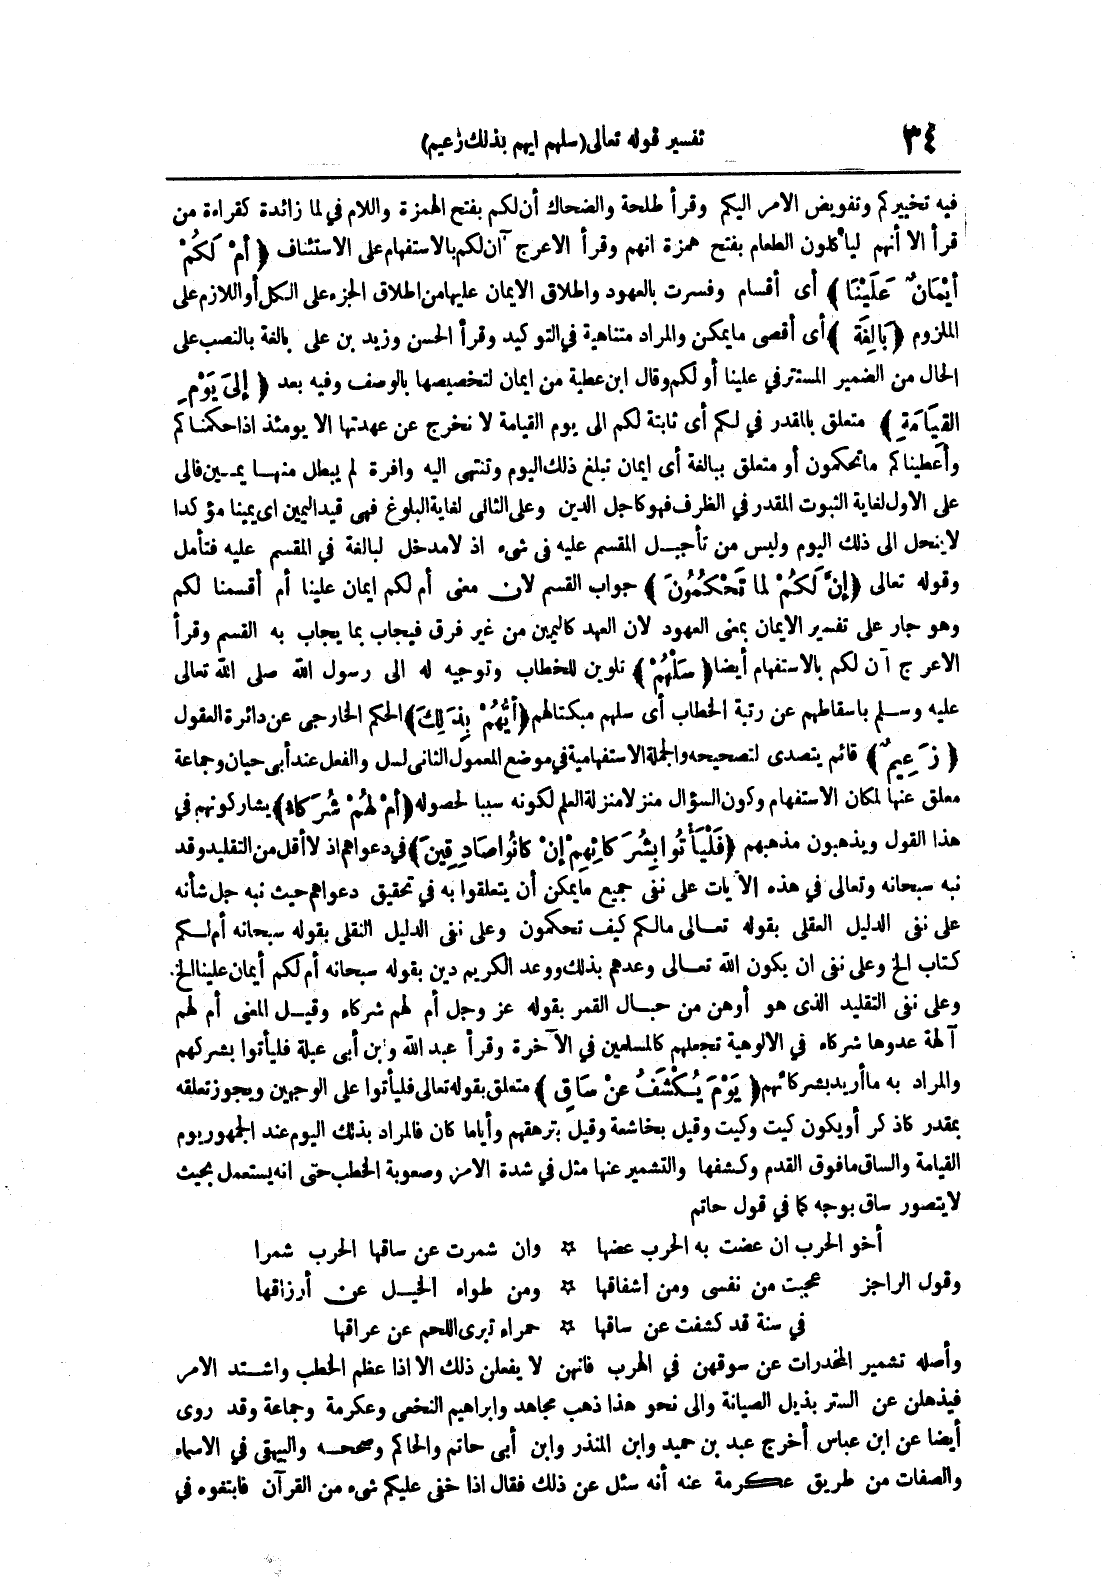 ٣٤
تفسير قوله تعالى (سلهم ايهم بذلك زعيم)
فيه تخييركم وتفويض الامر اليكم وقرأ طلحة والضحاك أن لكم بفتح الهمزة واللام في لما زائدة كقراءة من
قرأ الا أنهم ليأكلون الطعام بفتح همزة انهم وقرأ الاعرج آن لكم بالاستفهام على الاستئناف ﴿ أَمْ لَكُمْ
أَيْمَانٌ عَلَيْنَا ﴾ أى أقسام وفسرت بالعهود واطلاق الايمان عليها من اطلاق الجزء على الكل أو اللازم على
الملزوم ﴿ بَالِغَةٌ ﴾ أى أقصى ما يمكن والمراد متناهية في التوكيد وقرأ الحسن وزيد بن على بالغة بالنصب على
الحال من الضمير المستتر في علينا أو لكم وقال ابن عطية من ايمان لتخصيصها بالوصف وفيه بعد ﴿ إِلَى يَوْمِ
القِيَامَةِ ﴾ متعلق بالمقدر في لكم أى ثابتة لكم الى يوم القيامة لا نخرج عن عهدتها الا يومئذ اذا حكمناكم
وأعطيناكم ما تحكمون أو متعلق ببالغة أى ايمان تبلغ ذلك اليوم وتنتهى اليه وافرة لم يبطل منها يمين فالى
على الاول لغاية الثبوت المقدر في الظرف فهو كاجل الدين وعلى الثانى لغاية البلوغ فهى قيد اليمين اى يمينا مؤكدا
لا ينحل الى ذلك اليوم وليس من تأجيل المقسم عليه في شىء اذ لا مدخل لبالغة في المقسم عليه فتأمل
وقوله تعالى ﴿ إِنَّ لَكُمْ لَمَا تَحْكُمُونَ ﴾ جواب القسم لان معنى أم لكم ايمان علينا أم أقسمنا لكم
وهو جار على تفسير الايمان بمعنى العهود لان العهد كاليمين من غير فرق فيجاب بما يجاب به القسم وقرأ
الاعرج آن لكم بالاستفهام أيضا ﴿ سَلْهُمْ ﴾ تلوين للخطاب وتوجيه له الى رسول الله صلى الله تعالى
عليه وسلم باسقاطهم عن رتبة الخطاب أى سلهم مبكتا لهم ﴿ أَيُّهُمْ بِذَلِكَ ﴾ الحكم الخارجى عن دائرة العقول
﴿ زَعِيمٌ ﴾ قائم يتصدى لتصحيحه والجملة الاستفهامية في موضع المعمول الثانى لسل والفعل عند أبى حيان وجماعة
معلق عنها لمكان الاستفهام وكون السؤال منزلا منزلة العلم لكونه سببا لحصوله ﴿ أَمْ لَهُمْ شُرَكَاءُ ﴾ يشاركونهم في
هذا القول ويذهبون مذهبهم ﴿ فَلْيَأْتُوا بِشُرَكَائِهِمْ إِنْ كَانُوا صَادِقِينَ ﴾ في دعواهم اذ لا أقل من التقليد وقد
نبه سبحانه وتعالى في هذه الآيات على نفى جميع ما يمكن أن يتعلقوا به في تحقيق دعواهم حيث نبه جل شأنه
على نفى الدليل العقلى بقوله تعالى مالكم كيف تحكمون وعلى نفى الدليل النقلى بقوله سبحانه أم لكم
كتاب الخ وعلى نفى ان يكون الله تعالى وعدهم بذلك ووعد الكريم دين بقوله سبحانه أم لكم أيمان علينا الخ
وعلى نفى التقليد الذى هو أوهن من حبال القمر بقوله عز وجل أم لهم شركاء وقيل المعنى أم لهم
آلهة عدوها شركاء في الالوهية تجعلهم كالمسلمين في الآخرة وقرأ عبد الله وابن أبى عبلة فليأتوا بشركهم
والمراد به ما أريد بشركائهم ﴿ يَوْمَ يُكْشَفُ عَنْ سَاقٍ ﴾ متعلق بقوله تعالى فليأتوا على الوجهين ويجوز تعلقه
بمقدر كاذكر أو يكون كيت وكيت وقيل بخاشعة وقيل بترهقهم وأياما كان فالمراد بذلك اليوم عند الجمهور يوم
القيامة والساق ما فوق القدم وكشفها والتشمير عنها مثل في شدة الامر وصعوبة الخطب حتى انه يستعمل بحيث
لا يتصور ساق بوجه كما في قول حاتم
أخو الحرب ان عضت به الحرب عضها ☆ وان شمرت عن ساقها الحرب شمرا
وقول الراجز عجبت من نفسى ومن اشفاقها ☆ ومن طواء الخيل عن أرزاقها
في سنة قد كشفت عن ساقها ☆ حمراء تبرى اللحم عن عراقها
وأصله تشمير المخدرات عن سوقهن في الهرب فانهن لا يفعلن ذلك الا اذا عظم الخطب واشتد الامر
فيذهلن عن الستر بذيل الصيانة والى نحو هذا ذهب مجاهد وابراهيم النخعى وعكرمة وجماعة وقد روى
أيضا عن ابن عباس أخرج عبد بن حميد وابن المنذر وابن أبى حاتم والحاكم وصححه والبيهقى في الاسماء
والصفات من طريق عكرمة عنه أنه سئل عن ذلك فقال اذا خفى عليكم شىء من القرآن فابتغوه في